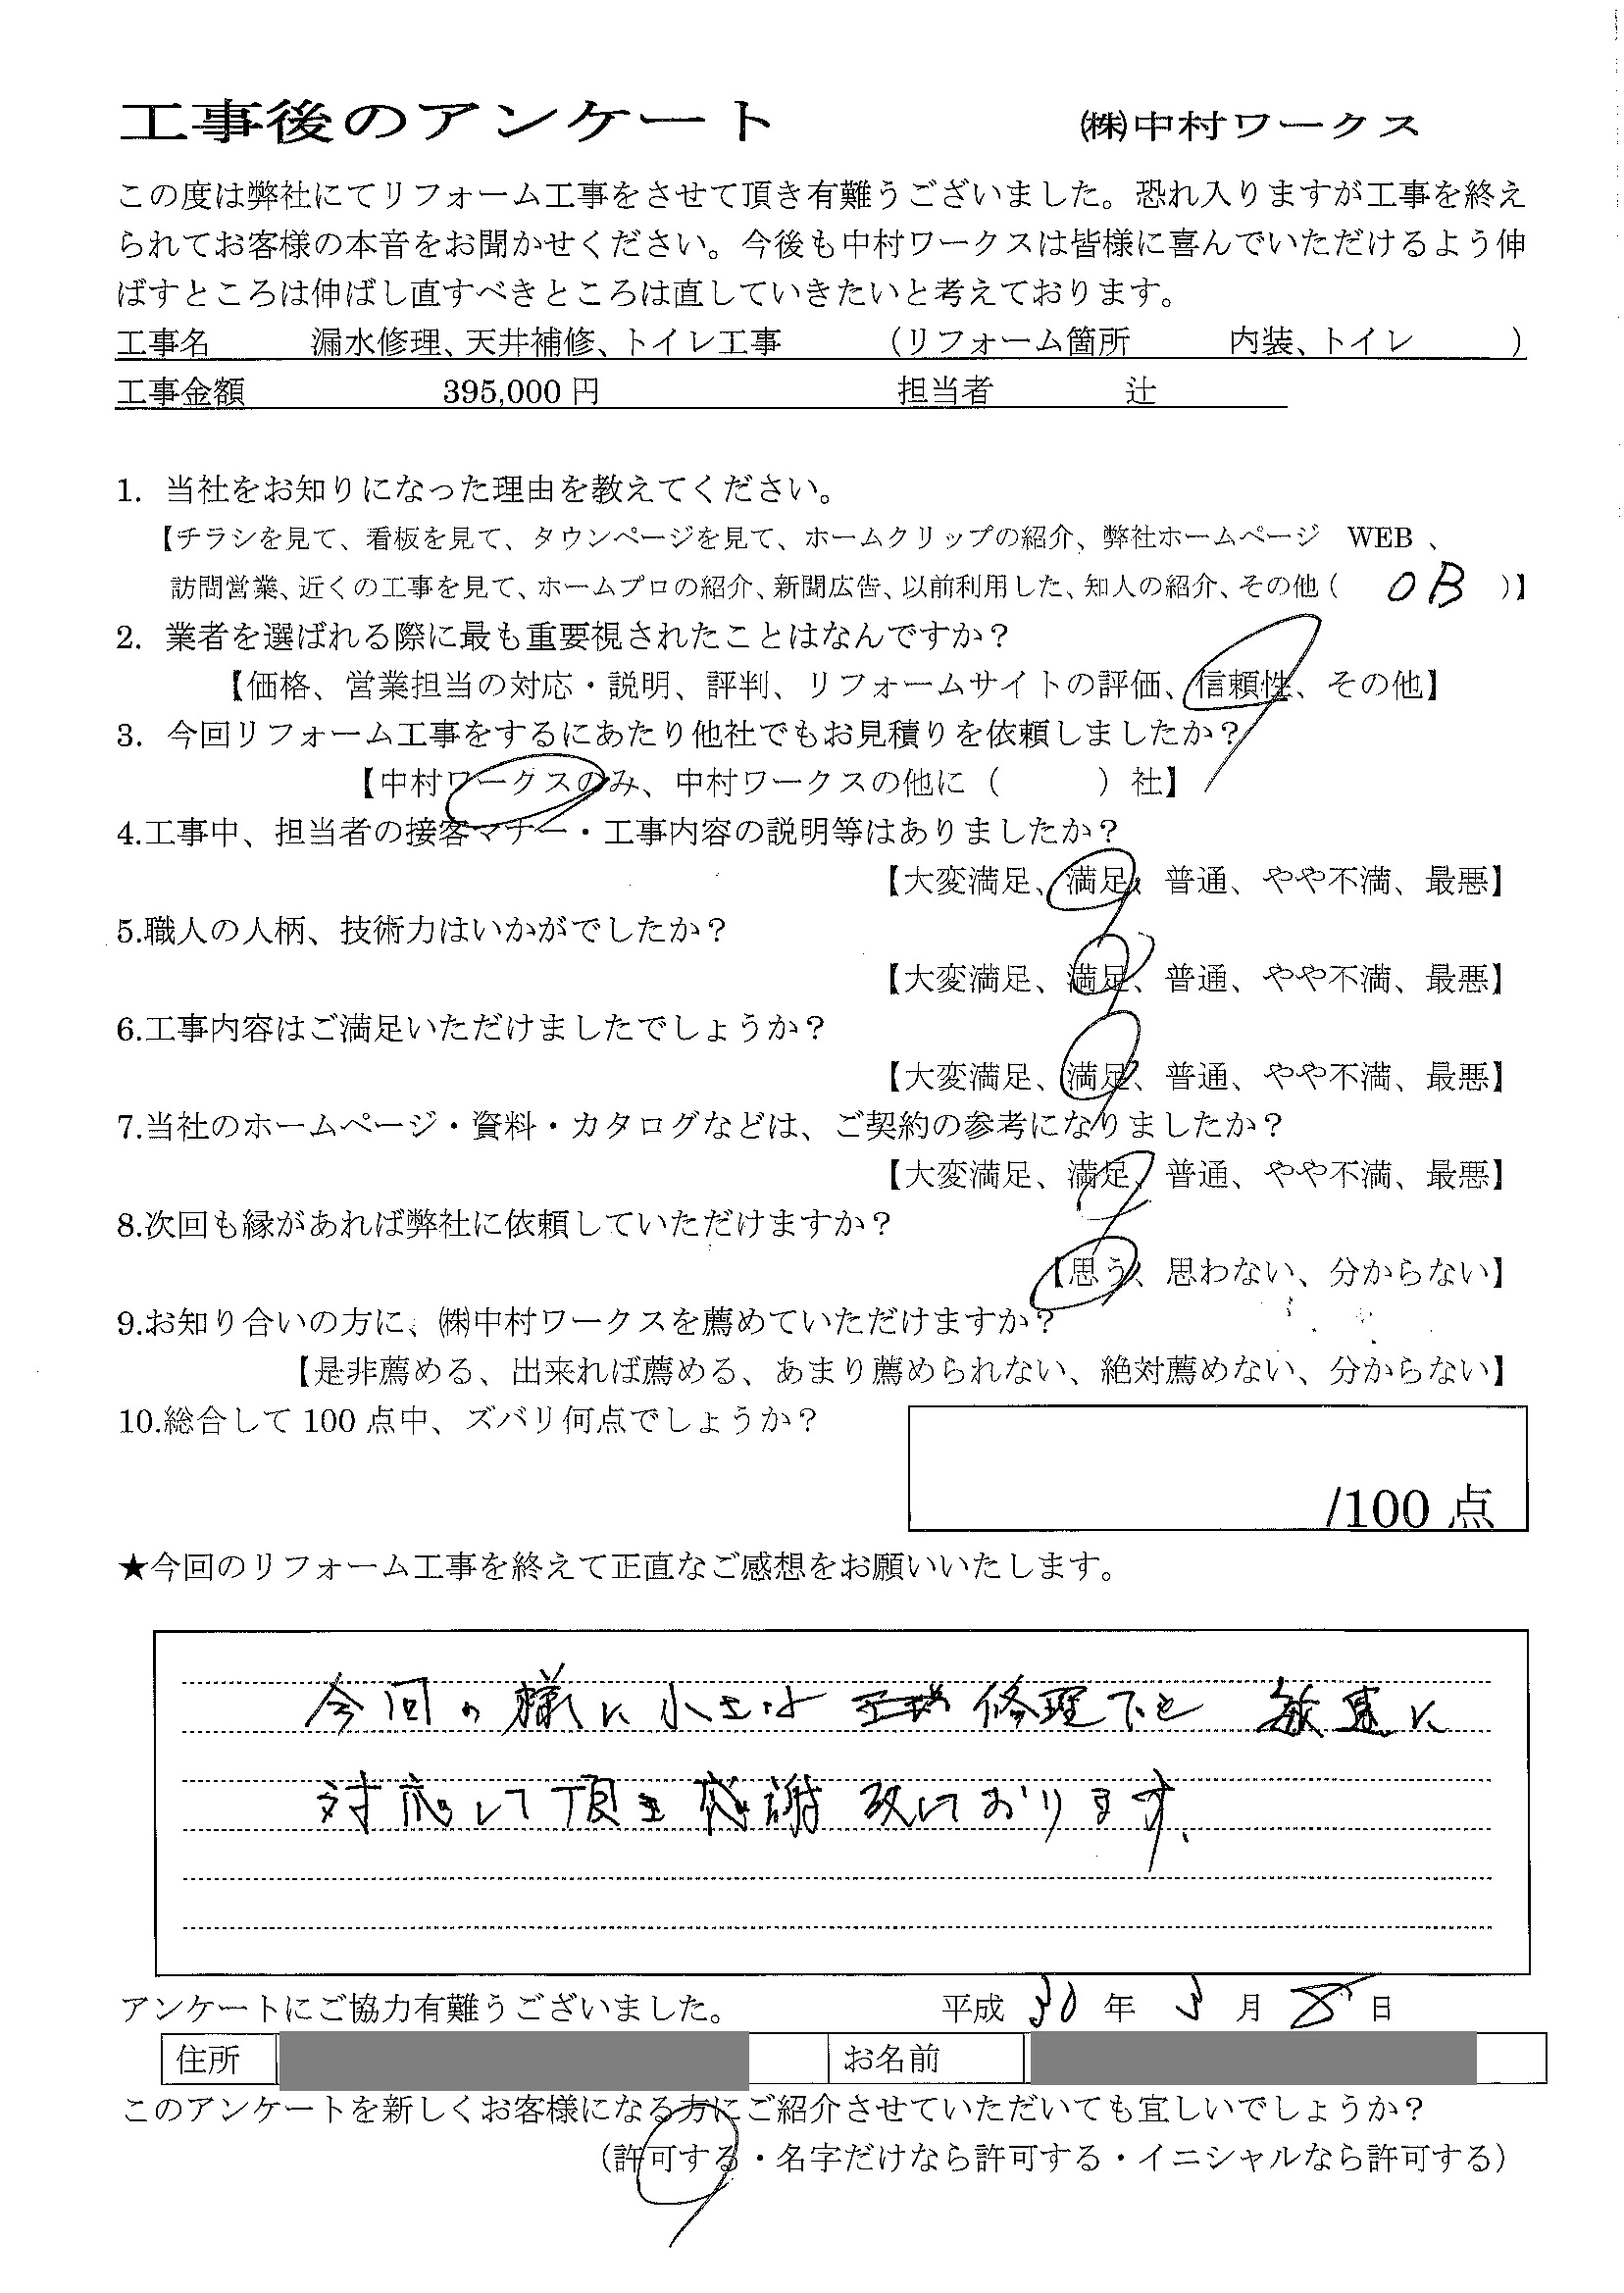 工事後のアンケート ㈱中村ワークス
この度は弊社にてリフォーム工事をさせて頂き有難うございました。恐れ入りますが工事を終え
られてお客様の本音をお聞かせください。今後も中村ワークスは皆様に喜んでいただけるよう伸
ばすところは伸ばし直すべきところは直していきたいと考えております。
工事名 漏水修理、天井補修、トイレ工事 （リフォーム箇所 内装、トイレ ）
工事金額 395,000 円 担当者 辻
1. 当社をお知りになった理由を教えてください。
【チラシを見て、看板を見て、タウンページを見て、ホームクリップの紹介、弊社ホームページ WEB 、
訪問営業、近くの工事を見て、ホームプロの紹介、新聞広告、以前利用した、知人の紹介、その他（ OB ）】
2. 業者を選ばれる際に最も重要視されたことはなんですか？
【価格、営業担当の対応・説明、評判、リフォームサイトの評価、信頼性、その他】
3. 今回リフォーム工事をするにあたり他社でもお見積りを依頼しましたか？
【中村ワークスのみ、中村ワークスの他に（ ）社】
4.工事中、担当者の接客マナー・工事内容の説明等はありましたか？
【大変満足、満足、普通、やや不満、最悪】
5.職人の人柄、技術力はいかがでしたか？
【大変満足、満足、普通、やや不満、最悪】
6.工事内容はご満足いただけましたでしょうか？
【大変満足、満足、普通、やや不満、最悪】
7.当社のホームページ・資料・カタログなどは、ご契約の参考になりましたか？
【大変満足、満足、普通、やや不満、最悪】
8.次回も縁があれば弊社に依頼していただけますか？
【思う、思わない、分からない】
9.お知り合いの方に、㈱中村ワークスを薦めていただけますか？
【是非薦める、出来れば薦める、あまり薦められない、絶対薦めない、分からない】
10.総合して 100 点中、ズバリ何点でしょうか？
/100 点
★今回のリフォーム工事を終えて正直なご感想をお願いいたします。
今回の様に小さな 修理でも 敏速に
対応して頂き感謝致しております。
アンケートにご協力有難うございました。 平成 30 年 3 月 8 日
住所 お名前
このアンケートを新しくお客様になる方にご紹介させていただいても宜しいでしょうか？
（許可する・名字だけなら許可する・イニシャルなら許可する）